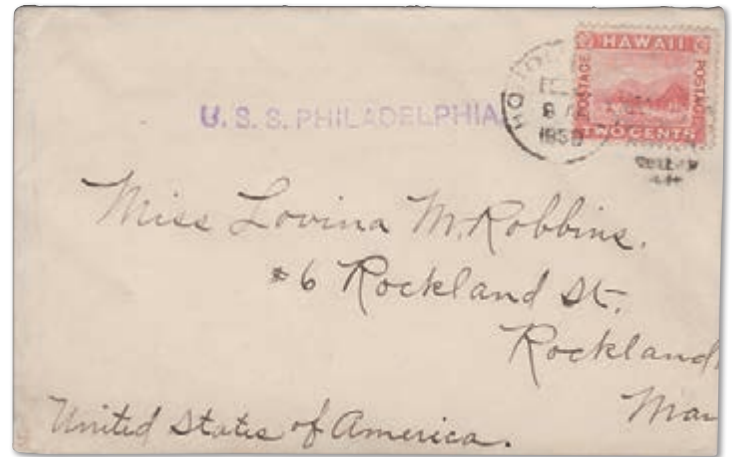 HAWAII
POSTAGE
POSTAGE
TWO CENTS
U. S. S. PHILADELPHIA.
Miss Lovina M. Robbins.
#6 Rockland St.
Rockland
United States of America.